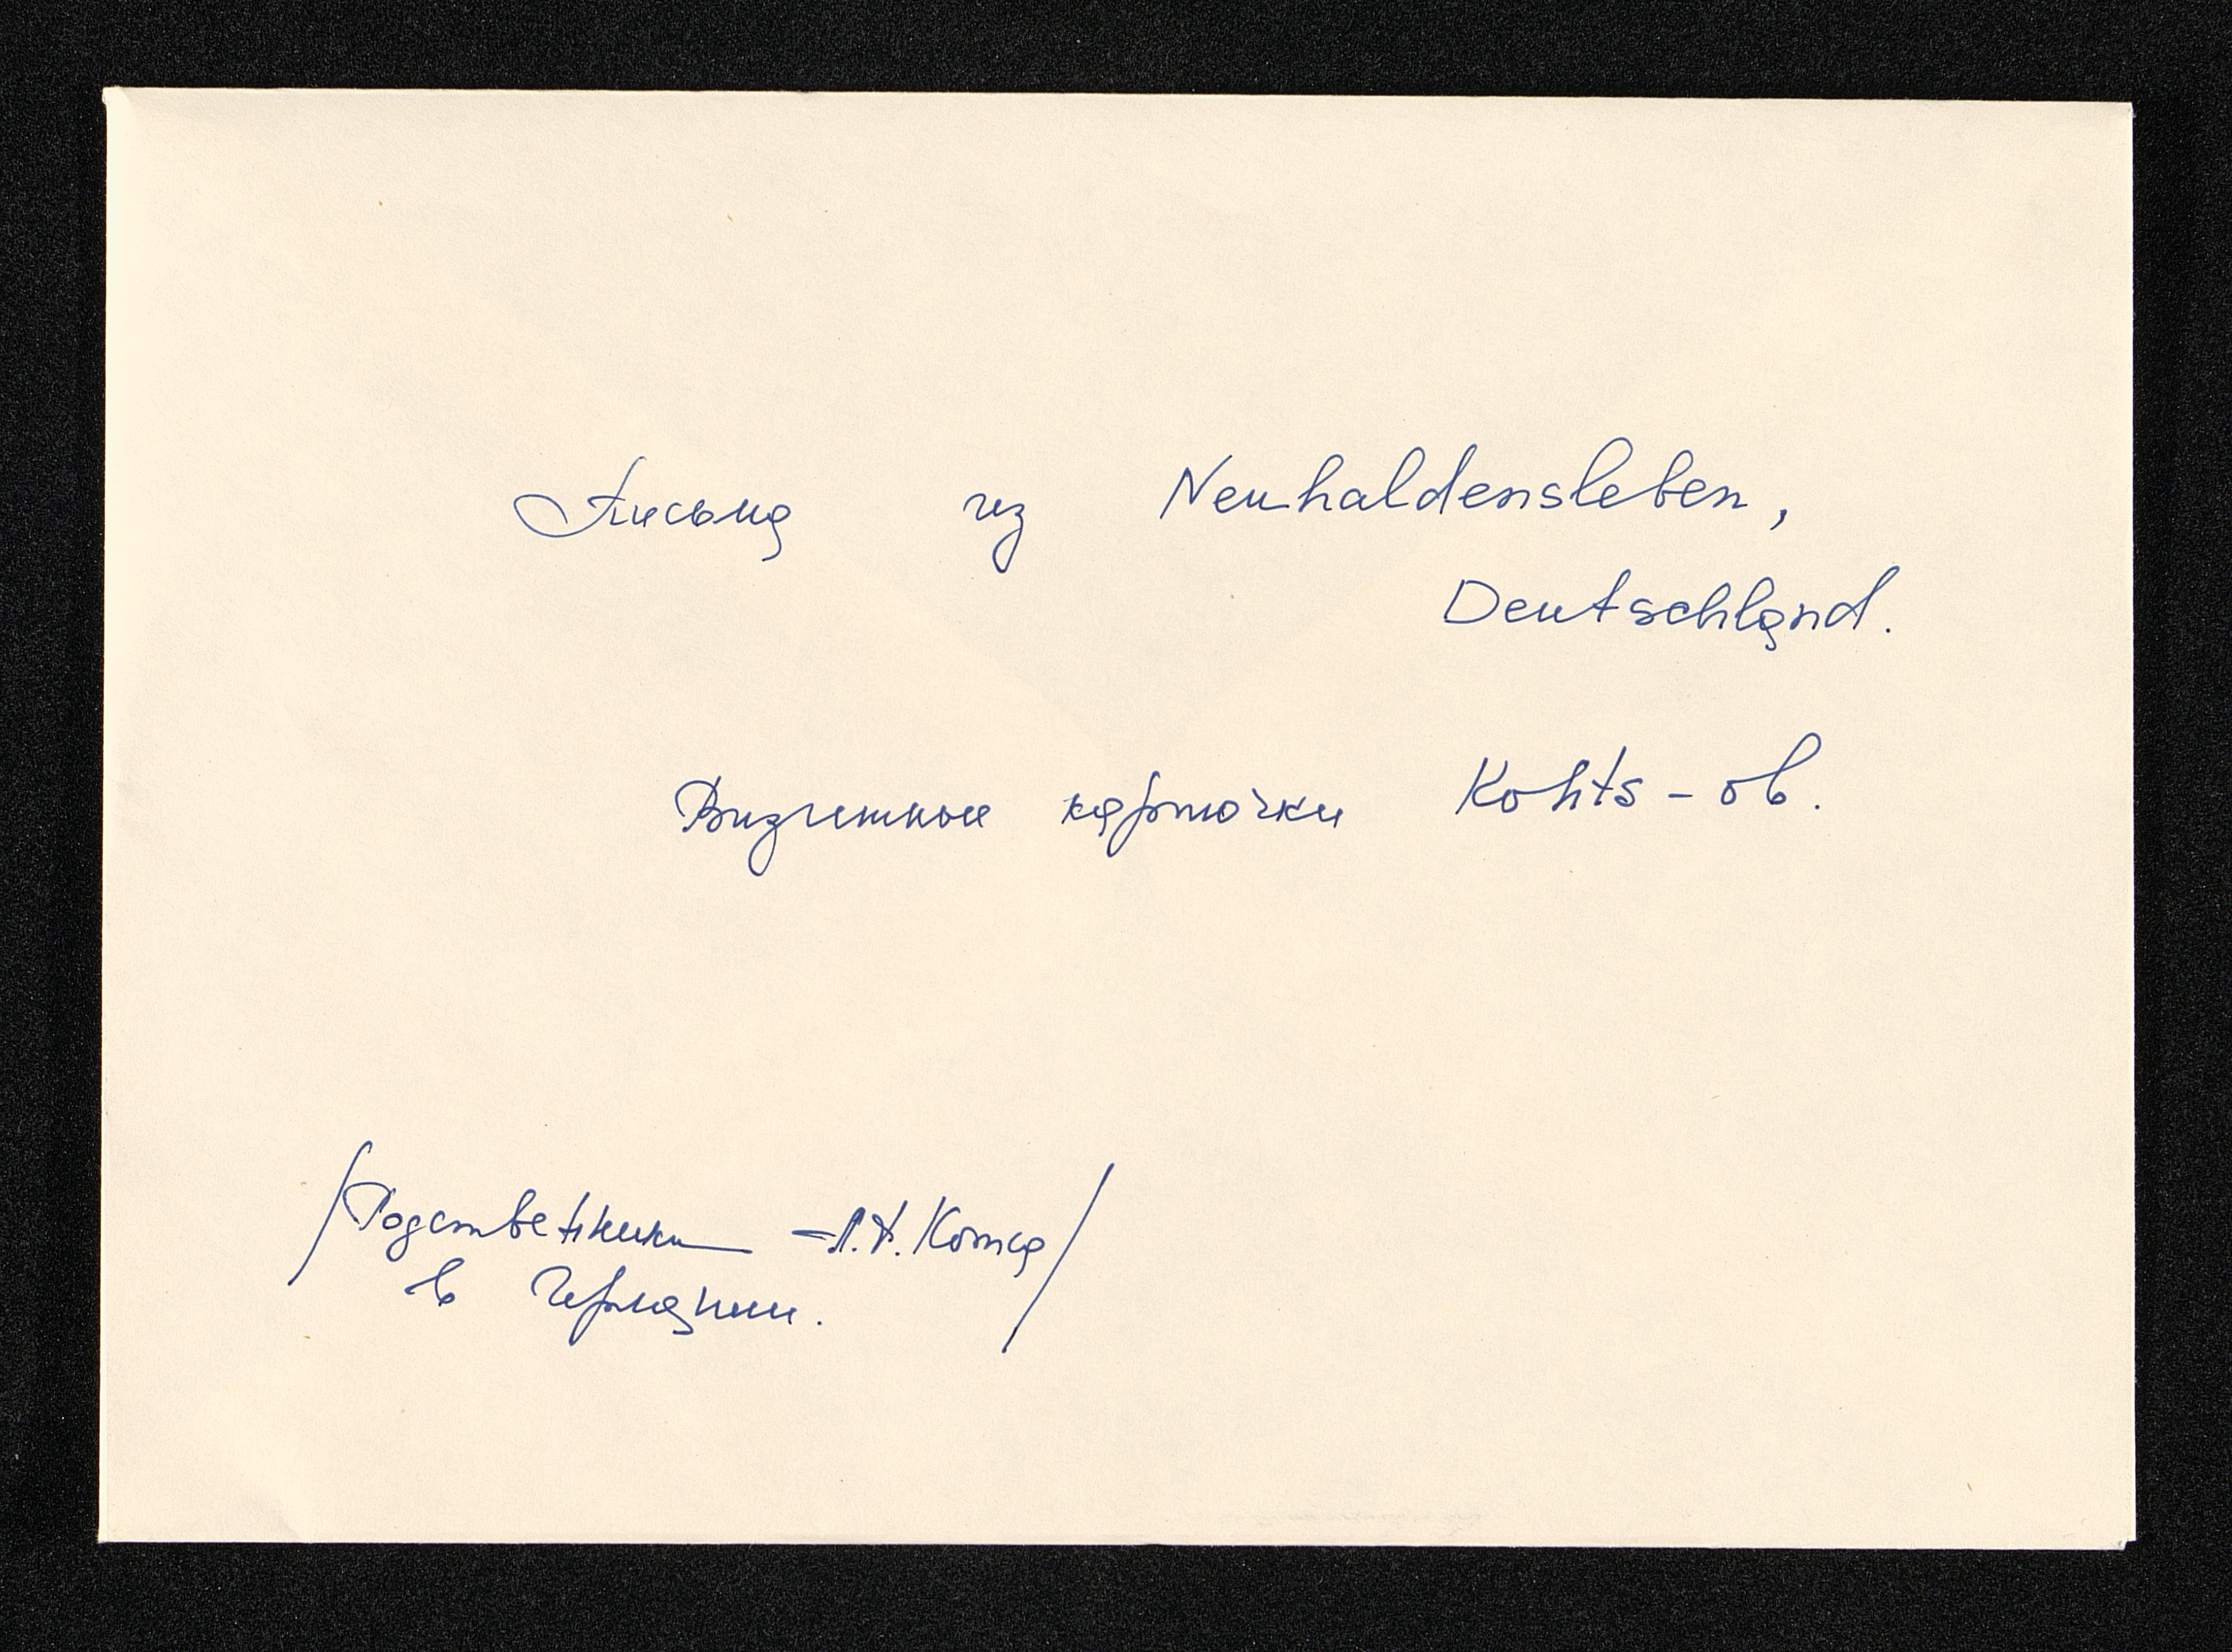 Письма из Neuhaldensleben,
Deutschland.
Визитные карточки Kohts-ов.
/Родственники - А. Ф. Котса/
в Германии.